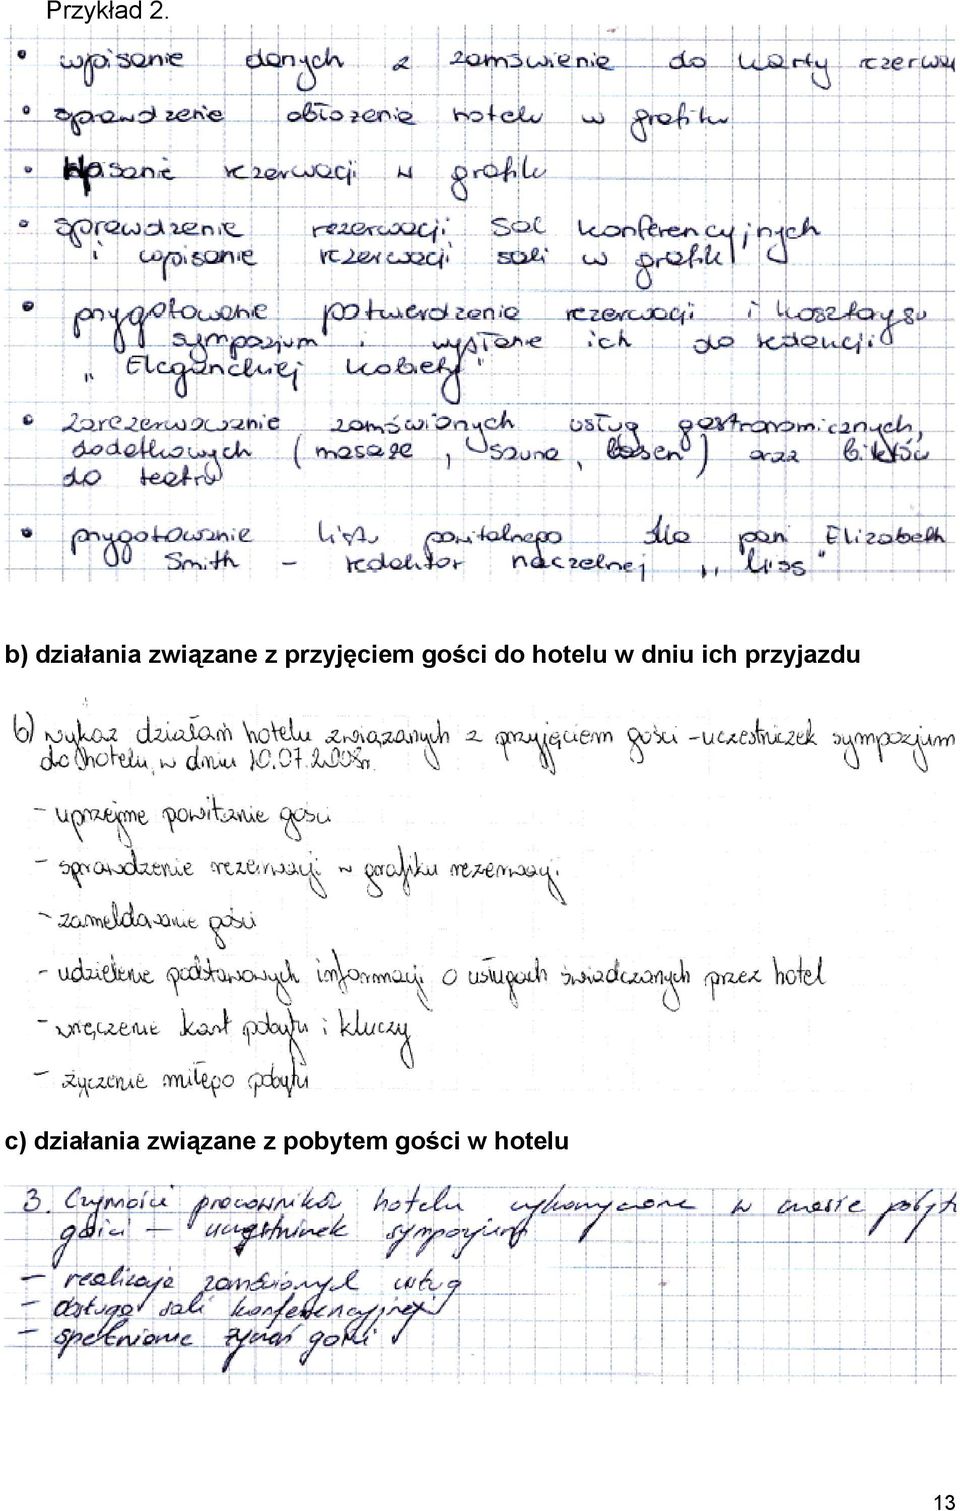 Przykład 2.
• wpisanie danych z zamówienie do karty rezerwa
• sprawdzenie obłożenie hotelu w grafiku
• Wpisanie rezerwacji w grafiku
• sprawdzenie rezerwacji sal konferencyjnych
i wpisanie rezerwacji sali w grafiku
• przygotowanie potwierdzenie rezerwacji i kosztorysu
sympozjum i wysłanie ich do redakcji
„Eleganckiej kobiety"
• zarezerwowanie zamówionych usług gastronomicznych,
dodatkowych (masaże, sauna, basen) oraz biletów
do teatru
• przygotowanie listu powitalnego dla pani Elizabeth
Smith – redaktor naczelnej „Liss"
b) działania związane z przyjęciem gości do hotelu w dniu ich przyjazdu
b) wykaz działań hotelu związanych z przyjęciem gości - uczestniczek sympozjum
do hotelu, w dniu 10.07.2008r.
- uprzejme powitanie gości
- sprawdzenie rezerwacji w grafiku rezerwacji
- zameldowanie gości
- udzielenie podstawowych informacji o usługach świadczonych przez hotel
- wręczenie kart pobytu i kluczy
- życzenie miłego pobytu
c) działania związane z pobytem gości w hotelu
3. Czynności pracowników hotelu wykonywane w czasie pobyt
gości – uczestniczek sympozjum
- realizacja zamówionych usług
- obsługa sali konferencyjnej
- spełnianie życzeń gości
13